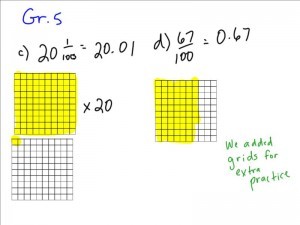 Gr. 5
c) 20 1/100 = 20.01
d) 67/100 = 0.67
x 20
We added
grids for
extra
practice